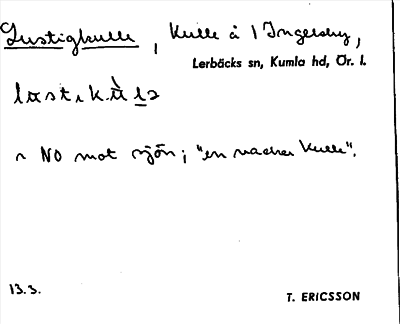 Lustigkulle, Kulle å 1 Ingersby,
Lerbäcks sn, Kumla hd, Ör. l.
NO mot sjön; "en vacker kulle".
13.3.
T. ERICSSON